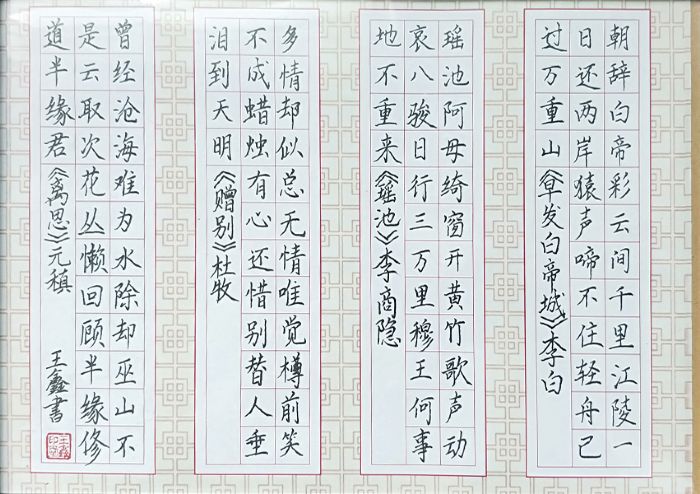 朝辞白帝彩云间千里江陵一
日还两岸猿声啼不住轻舟已
过万重山《早发白帝城》李白
瑶池阿母绮窗开黄竹歌声动
哀八骏日行三万里穆王何事
地不重来《瑶池》李商隐
多情却似总无情唯觉樽前笑
不成蜡烛有心还惜别替人垂
泪到天明《赠别》杜牧
曾经沧海难为水除却巫山不
是云取次花丛懒回顾半缘修
道半缘君《离思》元稹
王鑫书